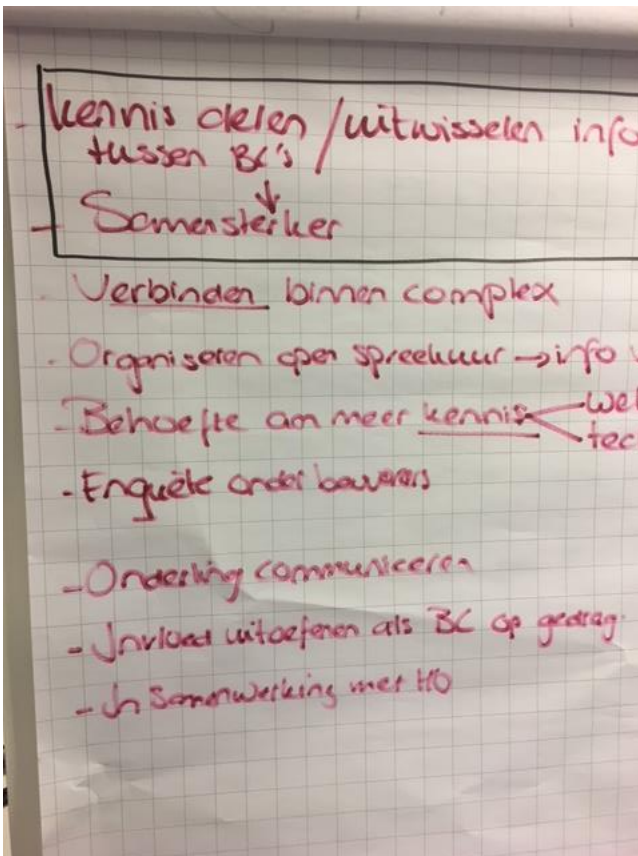 - kennis delen / uitwisselen info
tussen BC's
↓
- Samensterker
- Verbinden binnen complex
- Organiseren open spreekuur → info
- Behoefte aan meer kennis
- Enquête onder bewoners
- Onderling communiceren
- Invloed uitoefenen als BC op gedrag.
- In Samenwerking met HO